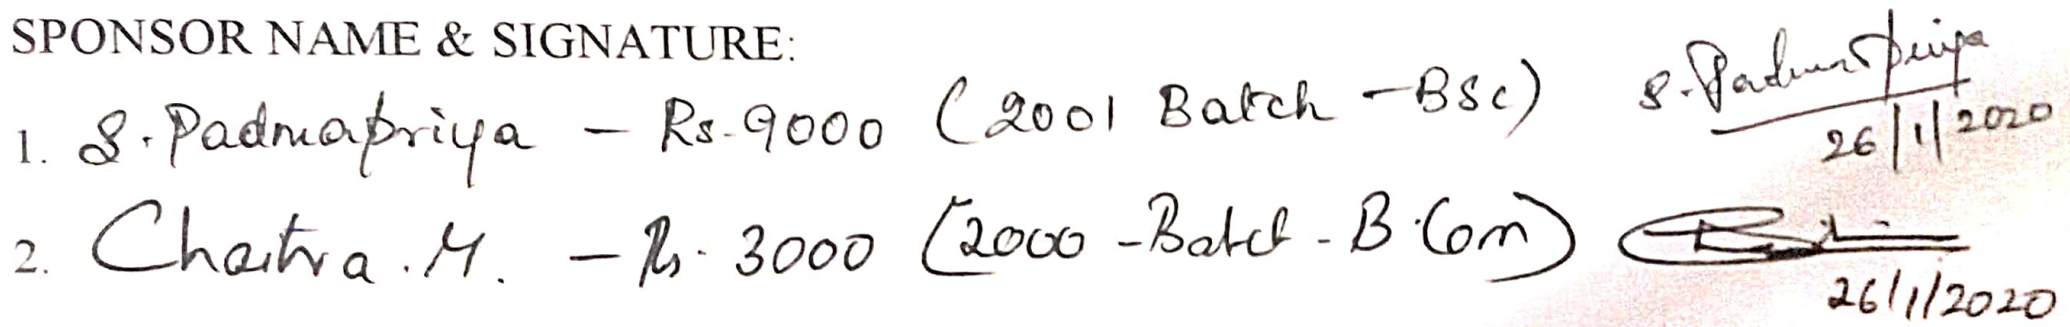 SPONSOR NAME & SIGNATURE:
1. S. Padmapriya - Rs. 9000 (2001 Batch - BSc) S. Padmapriya
26/1/2020
2. Chaitra. M. - Rs. 3000 (2000 - Batch - B.Com)
26/1/2020